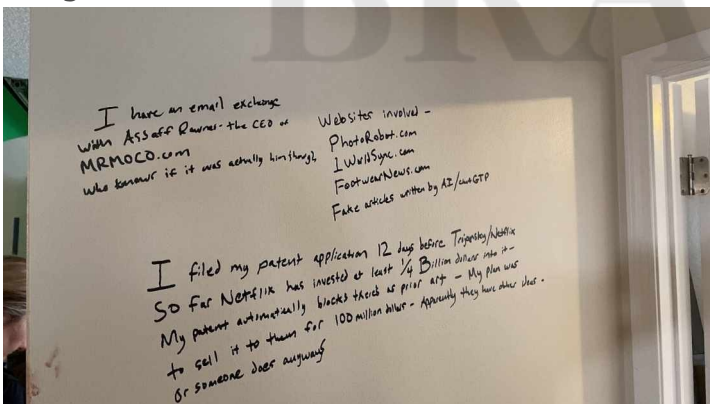 BRA
I have an email exchange
with Assaff Rawner - the CEO of
MRMOCO.com
who knows if it was actually him though
Websites involved -
PhotoRobot.com
1WorldSync.com
FootwearNews.com
Fake articles written by AI/chatGTP
I filed my patent application 12 days before Tripansky/Netflix
So far Netflix has invested at least 1/4 Billion dollars into it -
My patent automatically blocks theirs as prior art - My plan was
to sell it to them for 100 million dollars - Apparently they have other ideas -
Or someone does anyways